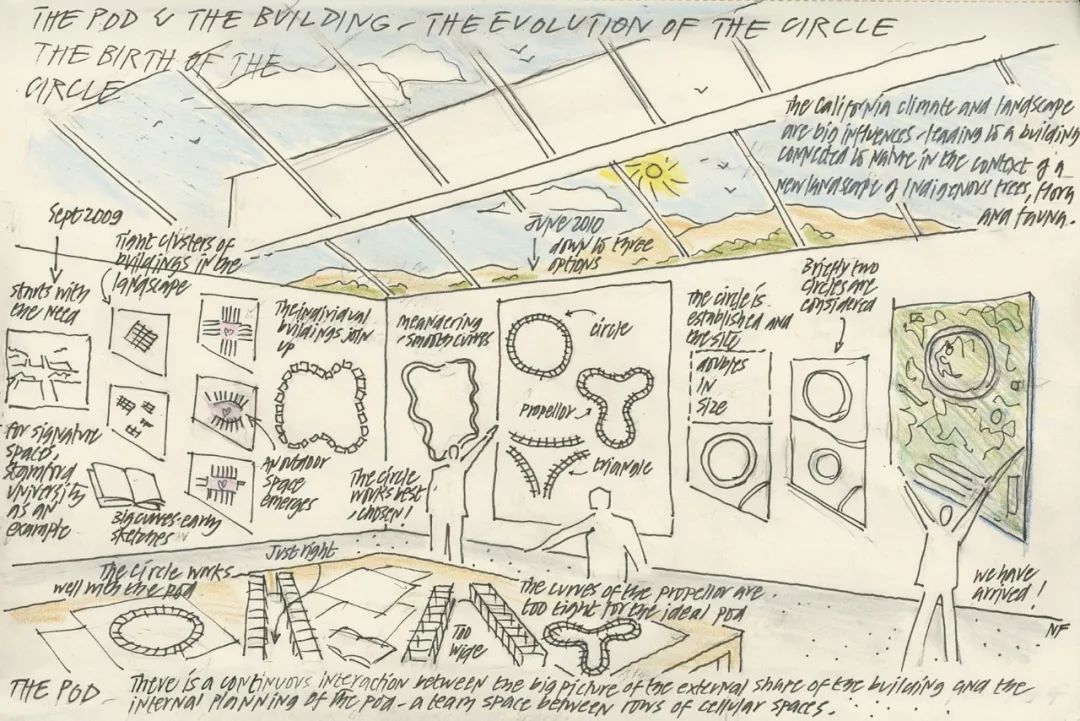 THE POD & THE BUILDING - THE EVOLUTION OF THE CIRCLE
THE BIRTH OF THE
CIRCLE
The California climate and landscape
are big influences - leading to a building
connected to nature in the context of a
new landscape of indigenous trees, flora
and fauna.
Sept 2009
starts with
the need
Tight clusters of
buildings in the
landscape
For signature
spaces,
Stamford
University
as an
example
Big curves-early
sketches
The individual
buildings join
up
An outdoor
space
emerges
meandering
-smooth curves
The circle
works best
, chosen!
June 2010
down to three
options
circle
propellor
triangle
The circle is
established and
the site
doubles
in
size
Briefly two
circles are
considered
we have
arrived!
NF
The circle works
well with the pod
Just right
Too
wide
The curves of the propellor are
too tight for the ideal pod
THE POD - There is a continuous interaction between the big picture of the external share of the building and the
internal planning of the pod - a team space between rows of cellular spaces.